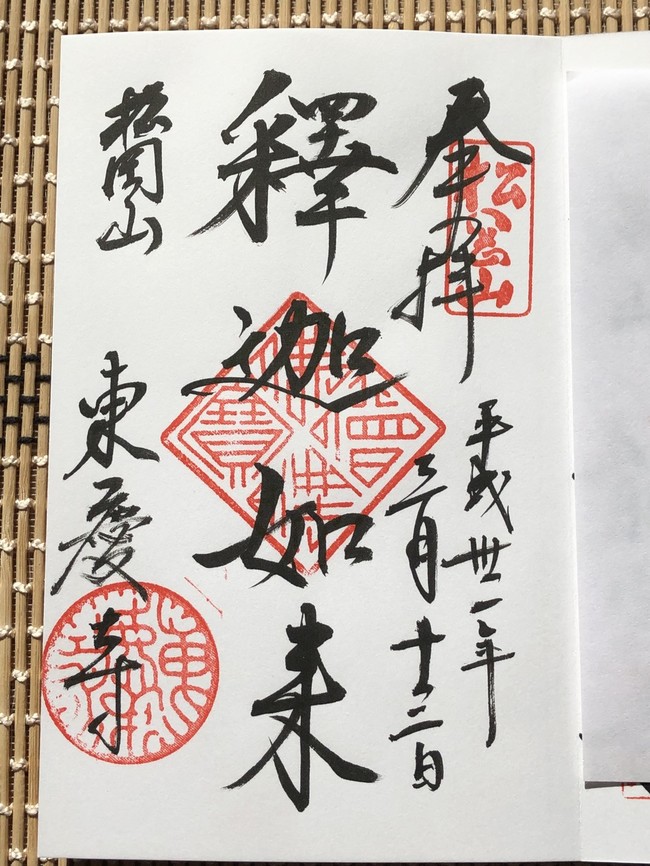 奉拝
松岡山
平成卅一年
三月十二日
釋迦如来
佛法僧寶
松岡山
東慶寺